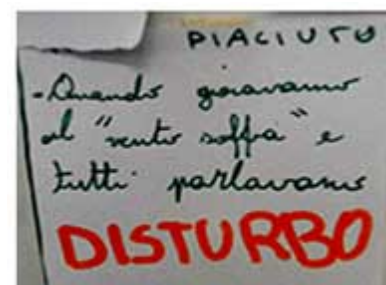 PIACIUTO
-Quando giocavamo
al "vento soffia" e
tutti parlavamo
DISTURBO